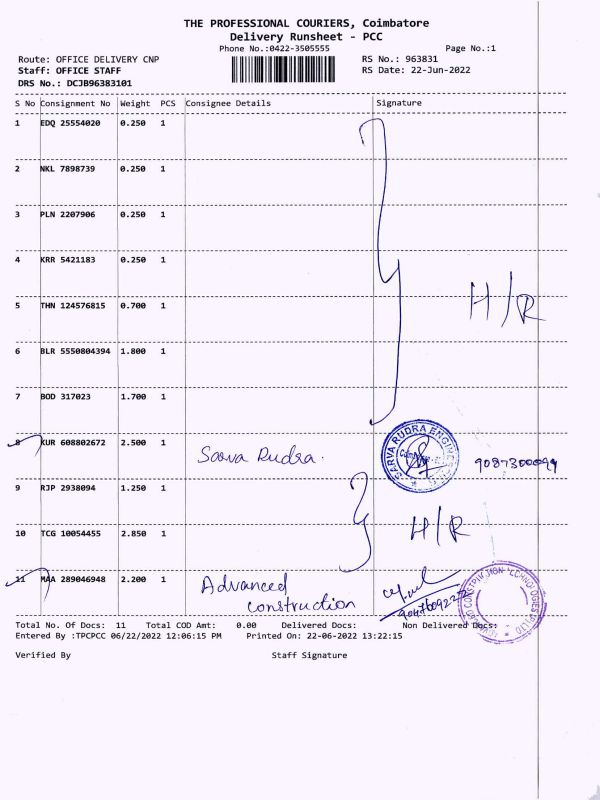 THE PROFESSIONAL COURIERS, Coimbatore
Delivery Runsheet - PCC
Phone No.:0422-3505555 Page No.:1
Route: OFFICE DELIVERY CNP RS No.: 963831
Staff: OFFICE STAFF RS Date: 22-Jun-2022
DRS No.: DCJB96383101
S No Consignment No Weight PCS Consignee Details Signature
1 EDQ 25554020 0.250 1
2 NKL 7898739 0.250 1
3 PLN 2207906 0.250 1
4 KRR 5421183 0.250 1
5 THN 124576815 0.700 1
H/R
6 BLR 5550804394 1.800 1
7 BOD 317023 1.700 1
8 KUR 608802672 2.500 1 Sarva Rudra. SARVA RUDRA
9 RJP 2938094 1.250 1
10 TCG 10054455 2.850 1 H/R
11 MAA 289046948 2.200 1 Advanced
construction
Total No. Of Docs: 11 Total COD Amt: 0.00 Delivered Docs: Non Delivered Docs:
Entered By :TPCPCC 06/22/2022 12:06:15 PM Printed On: 22-06-2022 13:22:15
Verified By Staff Signature